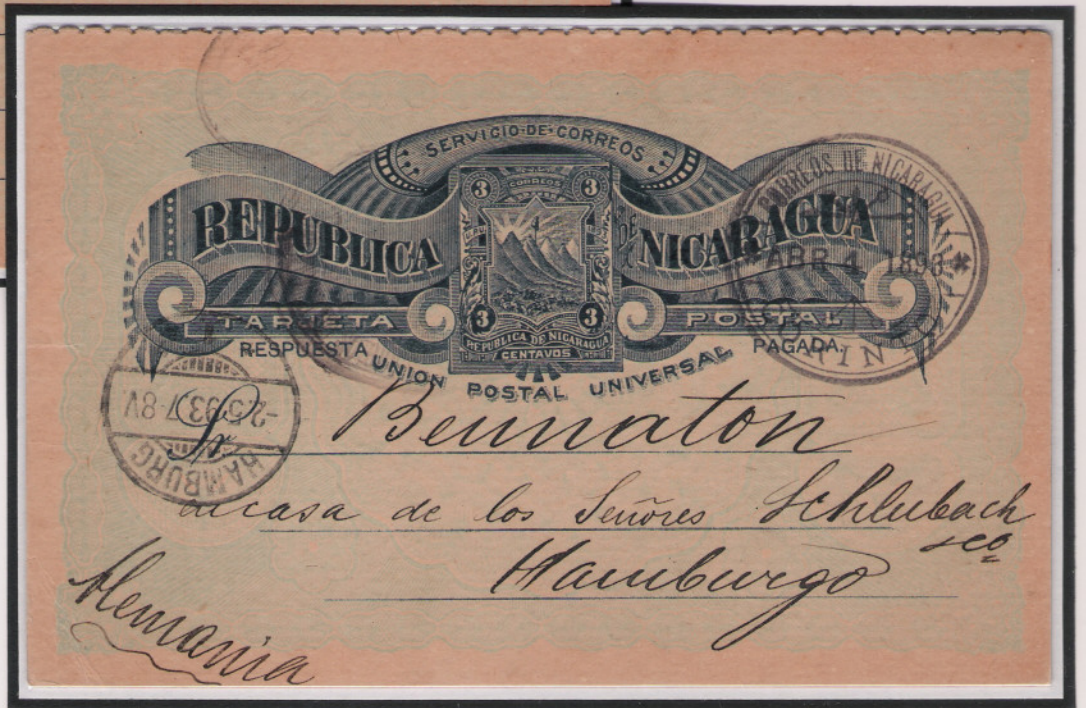 SERVICIO·DE·CORREOS
REPUBLICA DE NICARAGUA
3 CORREOS 3
3 3
REPUBLICA DE NICARAGUA
CENTAVOS
TARJETA POSTAL
RESPUESTA PAGADA.
UNION POSTAL UNIVERSAL
CORREOS DE NICARAGUA
ABR 4 1893
HAMBURG
-2.5.93.7-8V
Sr Beunaton
a casa de los Señores Schlubach
&co
Hamburgo
Alemania